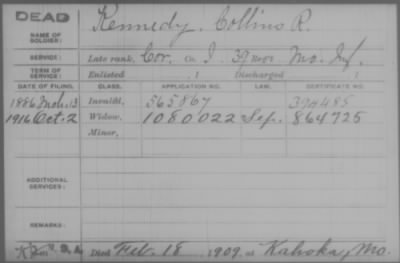 DEAD
Kennedy, Collins R.
NAME OF SOLDIER:
SERVICE: Late rank, Cor. Co. I, 39 Reg't Mo. Inf.
TERM OF SERVICE: Enlisted , 1 Discharged , 1
DATE OF FILING. CLASS. APPLICATION NO. LAW. CERTIFICATE NO.
1886 Mch. 13 Invalid, 565867 394485
1916 Oct. 2 Widow, 1080022 Sep. 864725
Minor,
ADDITIONAL SERVICES:
REMARKS:
Died Feb. 18, 1909, at Kahoka, Mo.